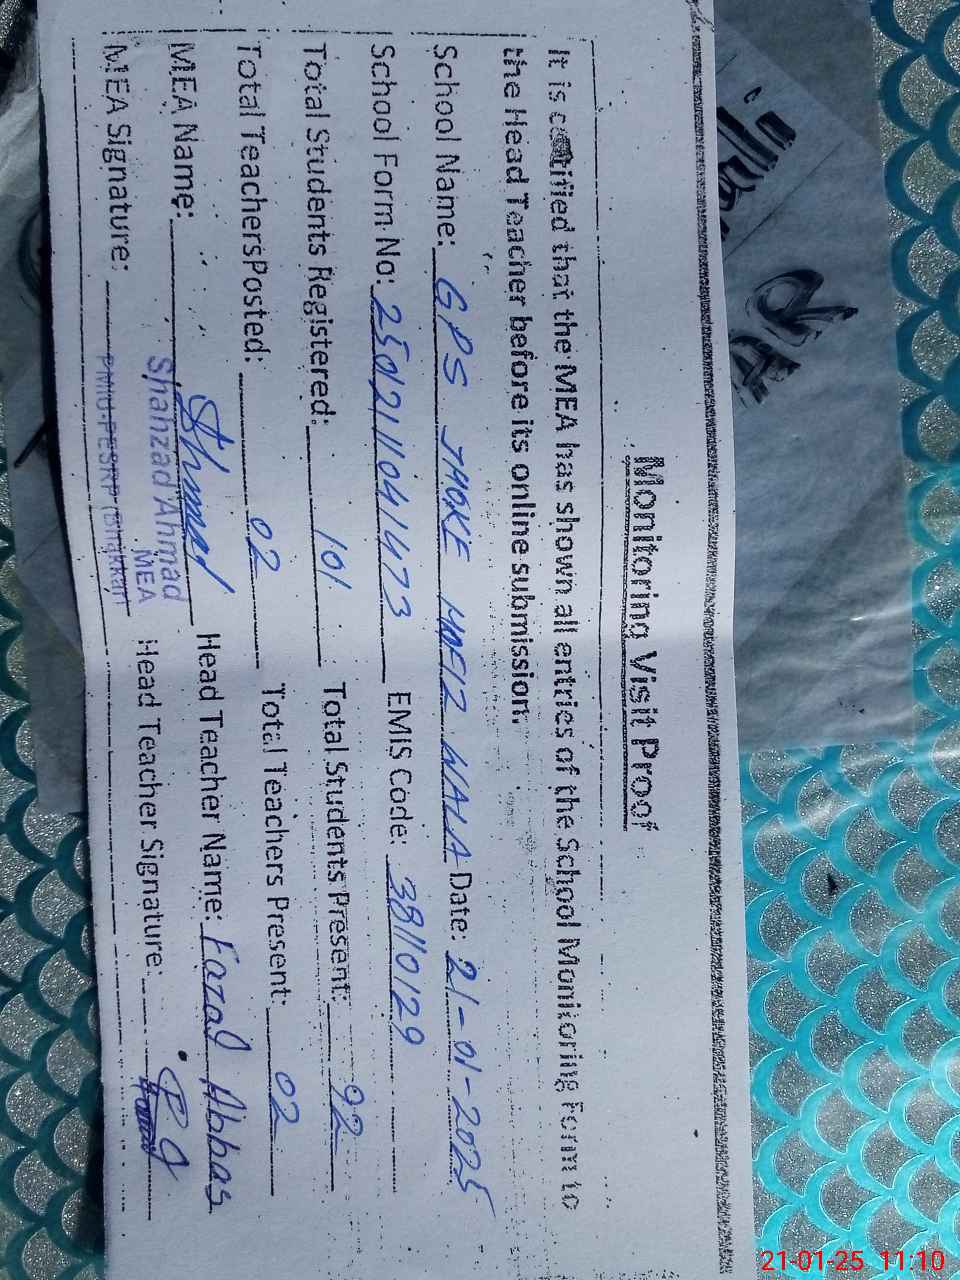 Monitoring Visit Proof
It is certified that the MEA has shown all entries of the School Monitoring Form to
the Head Teacher before its online submission.
School Name: GPS JHOKE HAFIZ WALA Date: 21-01-2025
School Form No: 2501211041473 EMIS Code: 38110129
Total Students Registered: 101 Total Students Present: 92
Total Teachers Posted: 02 Total Teachers Present: 02
MEA Name: Head Teacher Name: Fazal Abbas
Shahzad Ahmad
MEA
MEA Signature: PMIU-PESRP (Bhakkar) Head Teacher Signature:
21-01-25 11:10